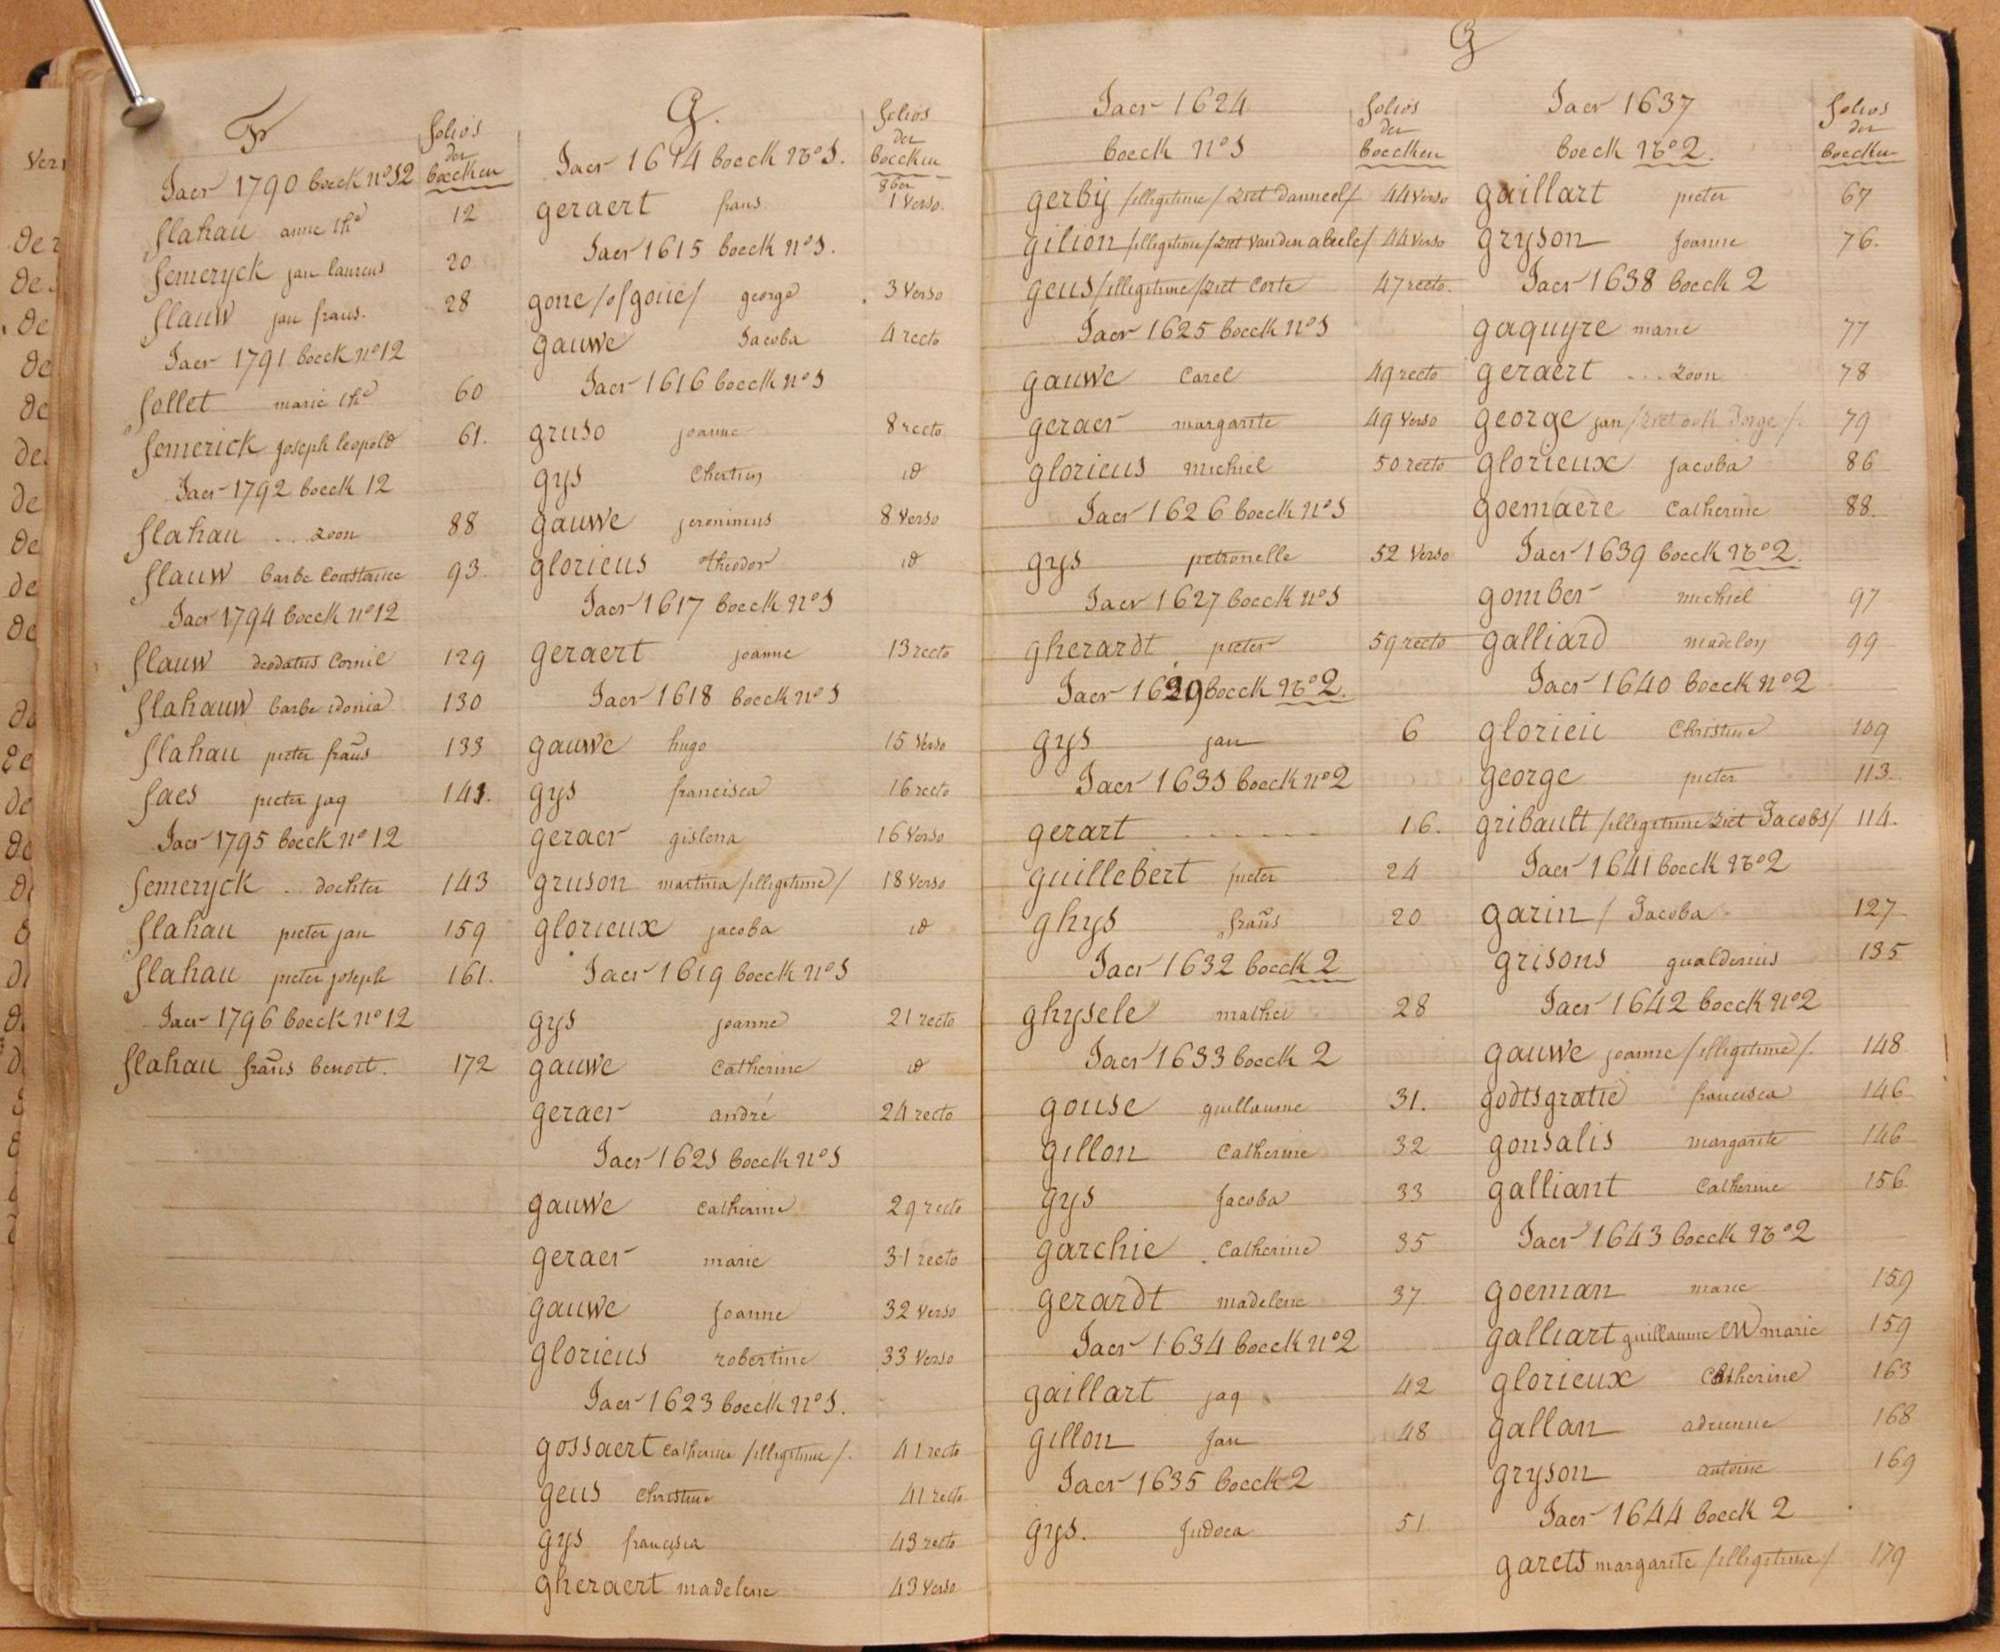 F
folio's
der
boecken
Jaer 1790 boeck no 12
flahau anne thé 12
femeryck jan laurens 20
flauw jan frans. 28
Jaer 1791 boeck no 12
follet marie thé 60
femerick joseph leopold 61.
Jaer 1792 boeck 12
flahau ... zoon 88
flauw barbe Constance 93.
Jaer 1794 boeck no 12
flauw deodatus Cornil 129
flahauw barbe idonia 130
flahau pieter frans 133
faes pieter jaq 141.
Jaer 1795 boeck no 12
femeryck .. dochter 143
flahau pieter jan 159
flahau pieter joseph 161.
Jaer 1796 boeck no 12
flahau frans benoit. 172
G.
folio's
der
boecken
Jaer 1614 boeck No 1.
8ber
geraert frans 1 Verso.
Jaer 1615 boeck no 1.
gone /of goué/ george 3 Verso
gauwe Jacoba 4 recto
Jaer 1616 boeck no 1
gruso joanne 8 recto
gys Chertien id
gauwe jeronimus 8 Verso
glorieus theodor id
Jaer 1617 boeck no 1
geraert joanne 13 recto
Jaer 1618 boeck no 1
gauwe hugo 15 Verso
gys francisca 16 recto
geraer gislena 16 Verso
gruson martina /illegitime/ 18 Verso
glorieux jacoba id
Jaer 1619 boeck no 1
gys joanne 21 recto
gauwe Catherine id
geraer andré 24 recto
Jaer 1621 boeck no 1
gauwe Catherine 29 recto
geraer marie 31 recto
gauwe Joanne 32 Verso
glorieus robertine 33 Verso
Jaer 1623 boeck no 1.
gossaert Catherine /illegitime/. 41 recto
geus Christine 41 recto
gys francisca 43 recto
gheraert madelene 43 Verso
G
Jaer 1624
boeck no 1
folios
der
boecken
gerby /illegitime/ ziet Danneel/ 44 Verso
gilion /illegitime/ ziet Van den abeele/ 44 Verso
geus /illegitime/ ziet Corte 47 recto.
Jaer 1625 boeck no 1
gauwe Carel 49 recto
geraer margarite 49 Verso
glorieus michiel 50 recto
Jaer 1626 boeck no 1
gys petronelle 52 Verso
Jaer 1627 boeck no 1
gherardt pieter 59 recto
Jaer 1629 boeck No 2.
gys jan 6
Jaer 1631 boeck no 2
gerart 16.
guillebert pieter 24
ghys frans 20
Jaer 1632 boeck 2
ghysele mathei 28
Jaer 1633 boeck 2
gouse guillaume 31.
gillon Catherine 32
gys Jacoba 33
garchie Catherine 35
gerardt madelene 37
Jaer 1634 boeck no 2
gaillart jaq 42
gillon Jan 48
Jaer 1635 boeck 2
gys. Judoca 51
Jaer 1637
boeck No 2.
folios
der
boecken
gaillart pieter 67
gryson Joanne 76.
Jaer 1638 boeck 2
gaquyre marie 77
geraert ... zoon 78
george jan /ziet ook Jorge/. 79
glorieux jacoba 86
goemaere Catherine 88.
Jaer 1639 boeck No 2.
gomber michiel 97
galliard madelon 99
Jaer 1640 boeck no 2
glorieu Christine 109
george pieter 113.
gribault /illegitime ziet Jacobs/ 114.
Jaer 1641 boeck No 2
garin / Jacoba 127
grisons gualderius 135
Jaer 1642 boeck no 2
gauwe joanne /illegitime/. 148
godtsgratie francisca 146
gonsalis margarite 146
galliant Catherine 156
Jaer 1643 boeck No 2
goeman marie 159
galliart guillaume en marie 159
glorieux Catherine 163
gallan adrienne 168
gryson antoine 169
Jaer 1644 boeck 2
garets margarite /illegitime/ 179